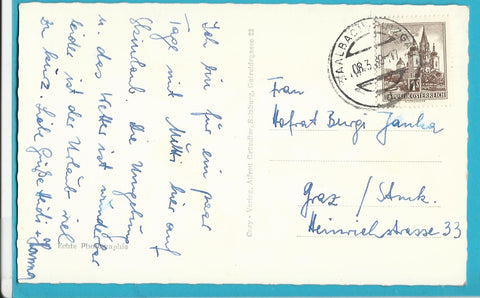 Ich bin für ein paar
Tage mit Mutti hier auf
Skiurlaub. Die Umgebung
u. das Wetter ist wunderbar
leider ist der Urlaub viel
zu kurz. Liebe Grüße Heidi + Hanna
Echte Photographie
Cosy-Verlag, Alfred Gründler, Salzburg, Getreidegasse 22
SAALBACH
08.3.
REPUBLIK ÖSTERREICH
Frau
Hofrat Burgi Janka
Graz / Stmk.
Heinrichstrasse 33